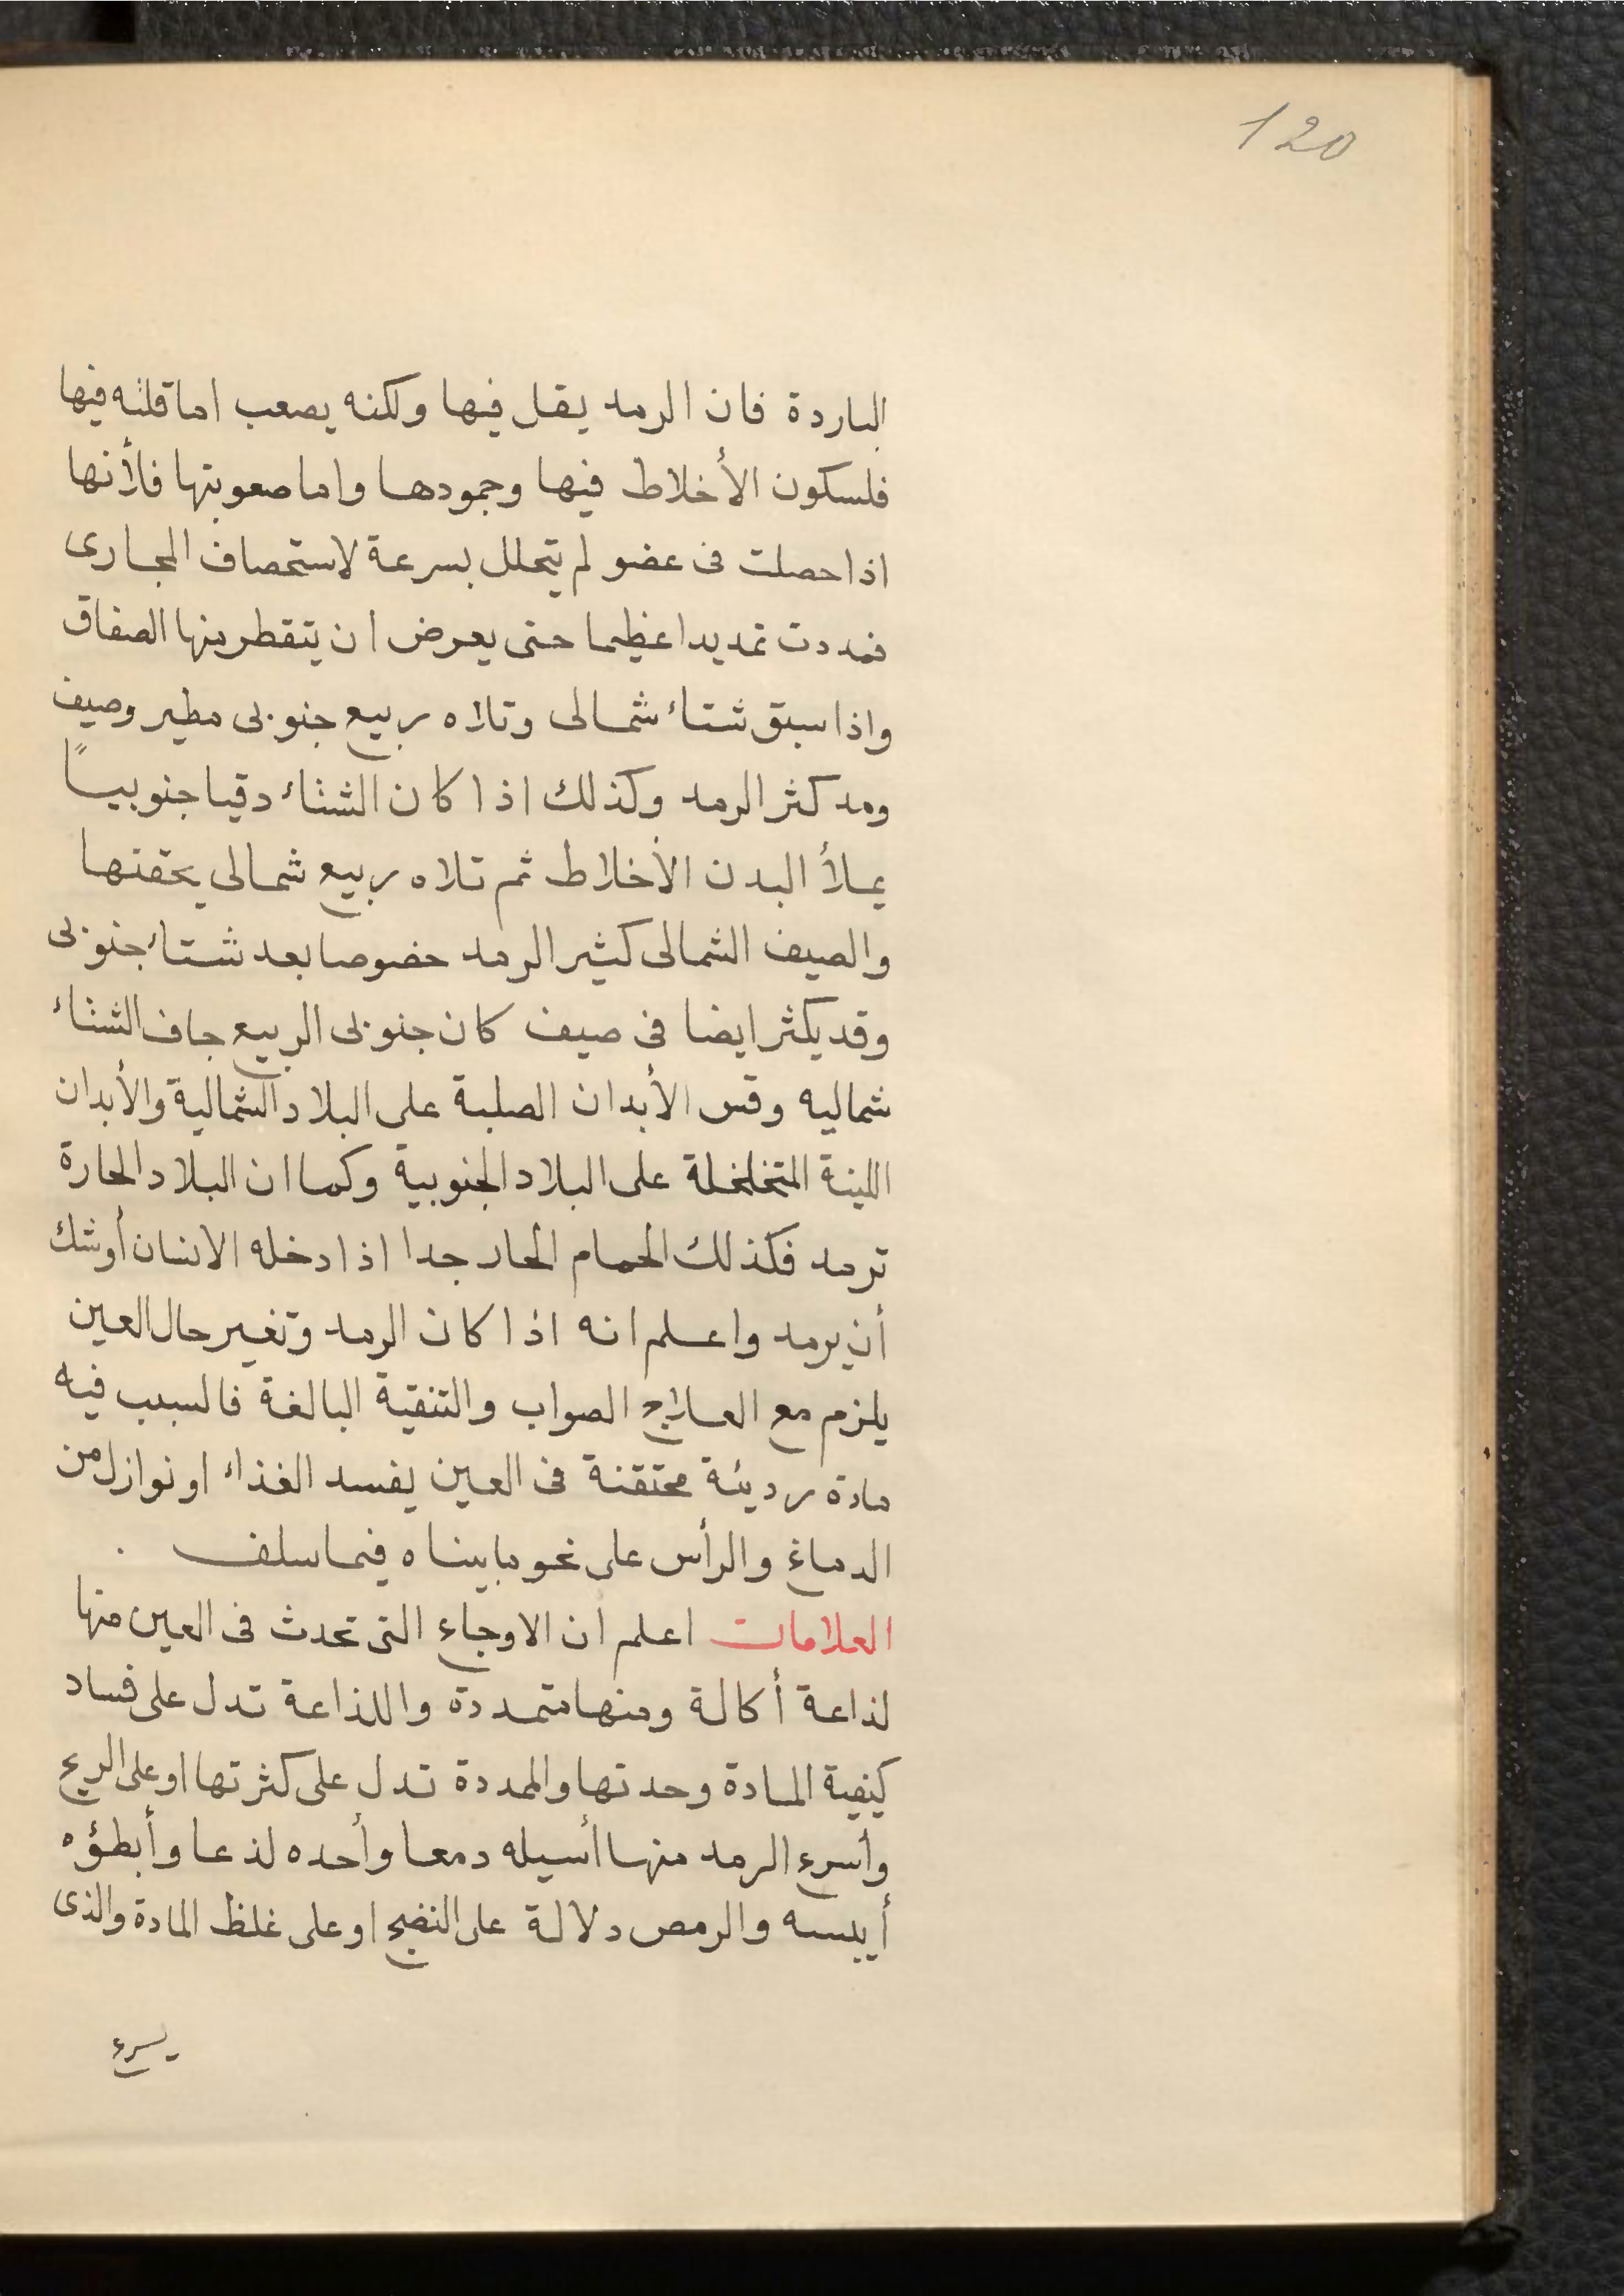 120
الباردة فان الرمد يقل فيها ولكنه يصعب اما قلته فيها
فلسكون الأخلاط فيها وجمودها واما صعوبتها فلأنها
اذا حصلت فى عضو لم يتحلل بسرعة لاستحصاف المجارى
فمددت تمديدا عظيما حتى يعرض ان يتقطر منها الصفاق
واذا سبق شتاء شمالى وتلاه ربيع جنوبى مطير وصيف
ومد كثر الرمد وكذلك اذا كان الشتاء دفيا جنوبياً
يملأ البدن الأخلاط ثم تلاه ربيع شمالى يحقنها
والصيف الشمالى كثير الرمد خصوصا بعد شتاء جنوبى
وقد يكثر ايضا فى صيف كان جنوبى الربيع جاف الشتاء
شماليه وقس الأبدان الصلبة على البلاد الشمالية والأبدان
اللينة المتخلخلة على البلاد الجنوبية وكما ان البلاد الحارة
ترمد فكذلك الحمام الحار جدا اذا دخله الانسان أوشك
أن يرمد واعلم انه اذا كان الرمد وتغير حال العين
يلزم مع العلاج الصواب والتنقية البالغة فالسبب فيه
مادة رديئة محتقنة فى العين يفسد الغذاء او نوازل من
الدماغ والرأس على نحو ما بيناه فيما سلف .
العلامات اعلم ان الاوجاع التى تحدث فى العين منها
لذاعة أكالة ومنها متمددة واللذاعة تدل على فساد
كيفية المادة وحدتها والممددة تدل على كثرتها او على الريح
وأسرع الرمد منها أسيله دمعا وأحده لذعا وأبطؤه
أيبسه والرمص دلالة على النضج او على غلظ المادة والذى
يسرع